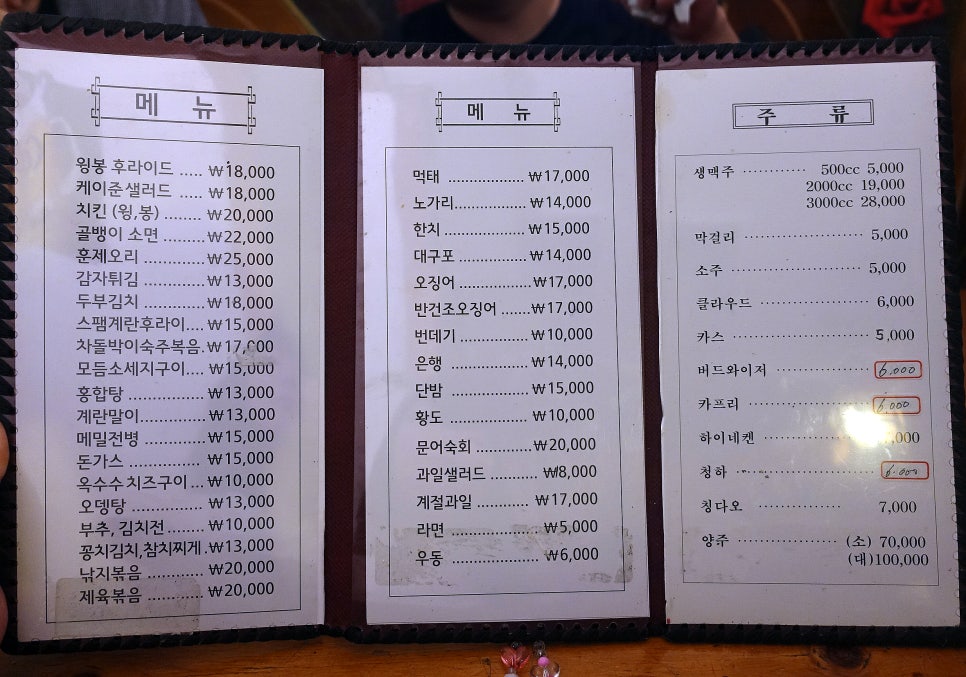 메 뉴
윙봉 후라이드 ..... ₩18,000
케이준 샐러드 ..... ₩18,000
치킨 (윙,봉) ........ ₩20,000
골뱅이 소면 ......... ₩22,000
훈제오리 ............. ₩25,000
감자튀김 ............. ₩13,000
두부김치 ............. ₩18,000
스팸계란후라이.... ₩15,000
차돌박이숙주볶음. ₩17,000
모듬소세지구이.... ₩15,000
홍합탕 ................ ₩13,000
계란말이............. ₩13,000
메밀전병 ............ ₩15,000
돈가스 ............... ₩15,000
옥수수 치즈구이... ₩10,000
오뎅탕 ............... ₩13,000
부추, 김치전 ........ ₩10,000
꽁치김치,참치찌게 . ₩13,000
낙지볶음 ............ ₩20,000
제육볶음 ............ ₩20,000
메 뉴
먹태 .................. ₩17,000
노가리................. ₩14,000
한치 .................. ₩15,000
대구포 ................ ₩14,000
오징어 ................ ₩17,000
반건조오징어 ....... ₩17,000
번데기 ................ ₩10,000
은행 .................. ₩14,000
단밤 .................. ₩15,000
황도 .................. ₩10,000
문어숙회 ............. ₩20,000
과일샐러드 ........... ₩8,000
계절과일 ............ ₩17,000
라면 .................. ₩5,000
우동 .................. ₩6,000
주 류
생맥주 ············ 500cc 5,000
2000cc 19,000
3000cc 28,000
막걸리 ······················ 5,000
소주 ························ 5,000
클라우드 ···················· 6,000
카스 ························ 5,000
버드와이저 ················ 6.000
카프리 ···················· 6.000
하이네켄 ···················· ,000
청하 ······················ 6.000
칭다오 ················ 7,000
양주 ·················· (소) 70,000
(대)100,000